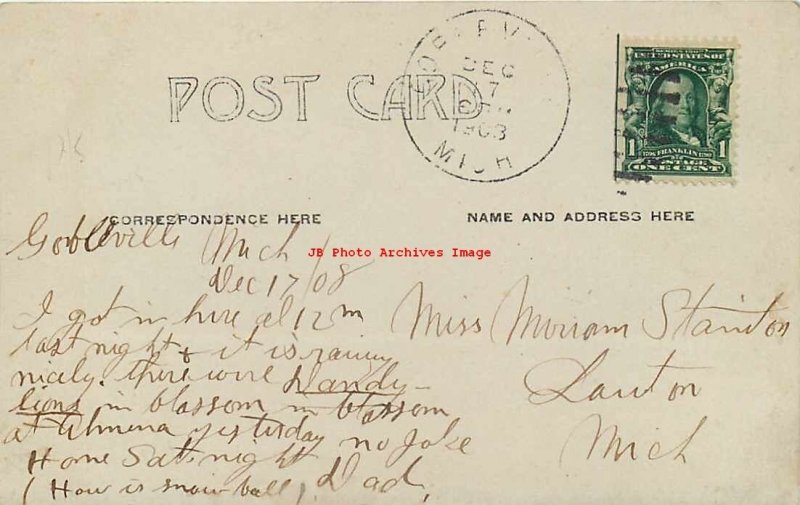 POST CARD
GOBLEVILLE
DEC
17
1908
MICH
UNITED STATES OF
AMERICA
1 FRANKLIN 1
POSTAGE
ONE CENT
CORRESPONDENCE HERE
NAME AND ADDRESS HERE
JB Photo Archives Image
Gobleville Mich
Dec 17/08
I got in here at 12 m
last night & it is raining
nicely. there were Dandy-
lions in blossom in blossom
at Almena yesterday no joke
Home Sat. night
(How is snow ball) Dad,
Miss Miriam Stainton
Lawton
Mich